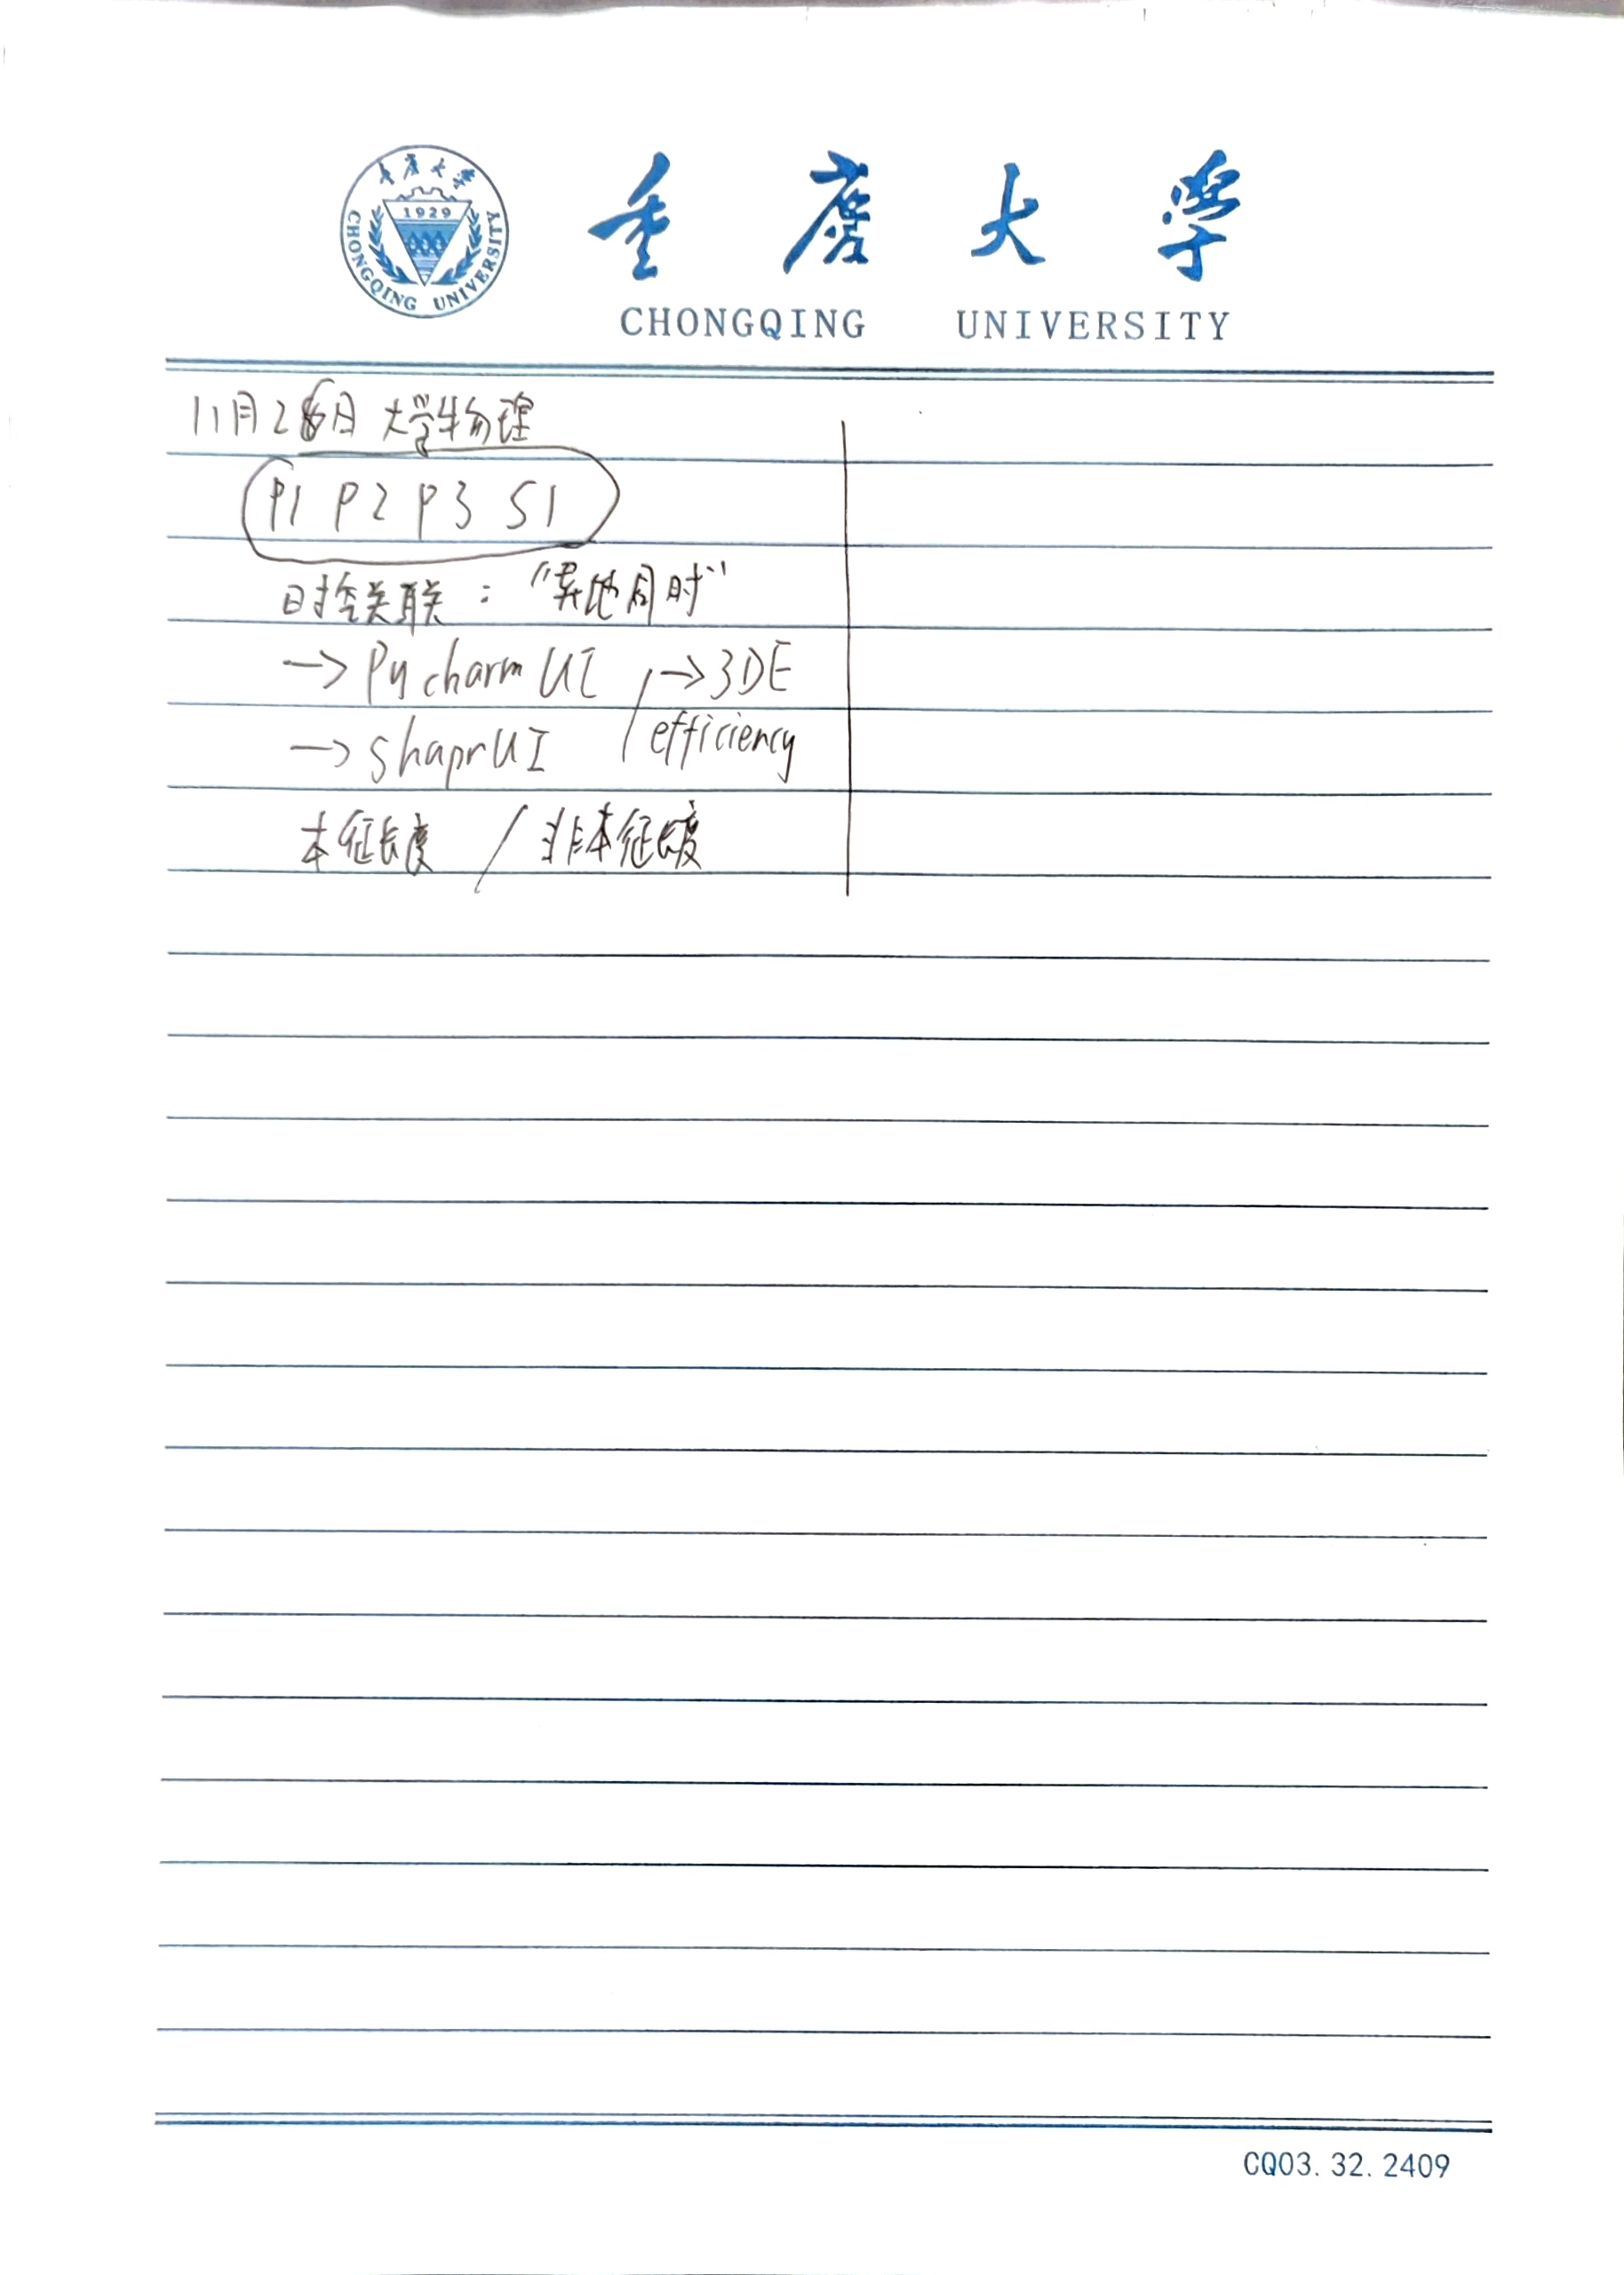 重庆大学
1929
CHONGQING UNIVERSITY
重庆大学
CHONGQING UNIVERSITY
11月26日 大学物理
P1 P2 P3 S1
时空关联："异地同时"
→Pycharm UI /→3DE
→shaprUI / efficiency
本征长度 / 非本征长度
CQ03.32.2409